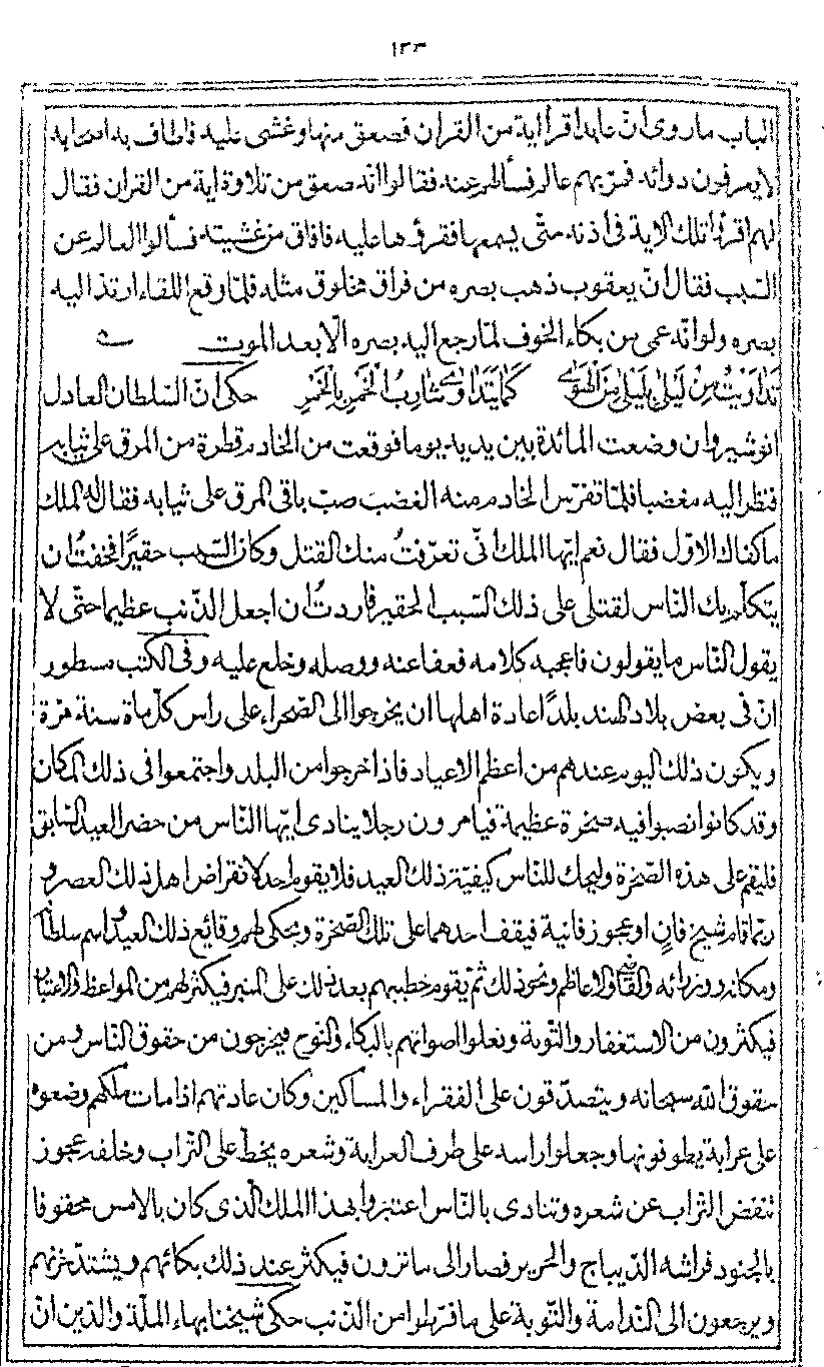 ١٣٣
الباب ما روى ان عابدا قرأ اية من القران فصعق منها وغشى عليه فاطاف به اصحابه
لا يعرفون دوائه فمر بهم عالم فسألهم عنه فقالوا انه صعق من تلاوة اية من القران فقال
لهم اقرؤا تلك الاية فى اذنه حتى يسمعها فقرؤها عليه فافاق من غشيته فسألوا العالم عن
السبب فقال ان يعقوب ذهب بصره من فراق مخلوق مثله فلما وقع اللقاء ارتد اليه
بصره ولو انه عمى من بكاء الخوف لما رجع اليه بصره الا بعد الموت
تَدَاوَيْتُ مِنْ لَيْلىٰ بِلَيْلىٰ مِنَ الْهَوىٰ كَمَا يَتَدَاوىٰ شَارِبُ الْخَمْرِ بِالْخَمْرِ حكى ان السلطان العادل
انوشيروان وضعت المائدة بين يديه يوما فوقعت من الخادم قطرة من المرق على ثيابه
فنظر اليه مغضبا فلما تفرس الخادم منه الغضب صب باقى المرق على ثيابه فقال له الملك
ما كفاك الاول فقال نعم ايها الملك انى تعرفت منك القتل وكان السبب حقيرا فخفت ان
يتكلم بك الناس لقتلى على ذلك السبب الحقير فاردت ان اجعل الذنب عظيما حتى لا
يقول الناس ما يقولون فاعجبه كلامه فعفا عنه ووصله وخلع عليه وفى الكتب مسطور
ان فى بعض بلاد الهند بلدا عادة اهلها ان يخرجوا الى الصحراء على راس كل ماة سنة مرة
ويكون ذلك اليوم عندهم من اعظم الاعياد فاذا خرجوا من البلد واجتمعوا فى ذلك المكان
وقد كانوا نصبوا فيه صخرة عظيمة فيامرون رجلا ينادى ايها الناس من حضر العيد السابق
فليقم على هذه الصخرة وليحك للناس كيفية ذلك العيد فلا يقوم احد لانقراض اهل ذلك العصر و
ربما قام شيخ فان او عجوز فانية فيقف احدهما على تلك الصخرة ويحكى لهم وقايع ذلك العيد واسم سلطانه
ومكانه ووزرائه والقاضى والاعاظم ونحو ذلك ثم يقوم خطيبهم بعد ذلك على المنبر فيكثر لهم من المواعظ والاعتبار
فيكثرون من الاستغفار والتوبة وتعلوا اصواتهم بالبكاء والنوح فيخرجون من حقوق الناس ومن
حقوق الله سبحانه ويتصدقون على الفقراء والمساكين وكان عادتهم اذا مات ملكهم وضعوه
على عرابة يطوفونها وجعلوا راسه على طرف العرابة وشعره يخط على التراب وخلفه عجوز
تنفض التراب عن شعره وتنادى بالناس اعتبروا بهذا الملك الذى كان بالامس محفوفا
بالجنود فراشه الديباج والحرير فصار الى ما ترون فيكثر عند ذلك بكائهم ويشتد حزنهم
ويرجعون الى الندامة والتوبة على ما فرطوا من الذنب حكى شيخنا بهاء الملة والدين ان